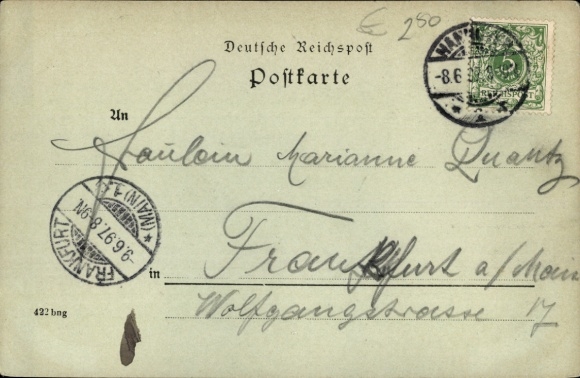 280
Deutsche Reichspost
Postkarte
-8.6
REICHSPOST
An
Fräulein Marianne Quantz
FRANKFURT (MAIN)
-9.6.97.8-9N.
in Frankfurt a/Main
Wolfgangstrasse 17
422 bng